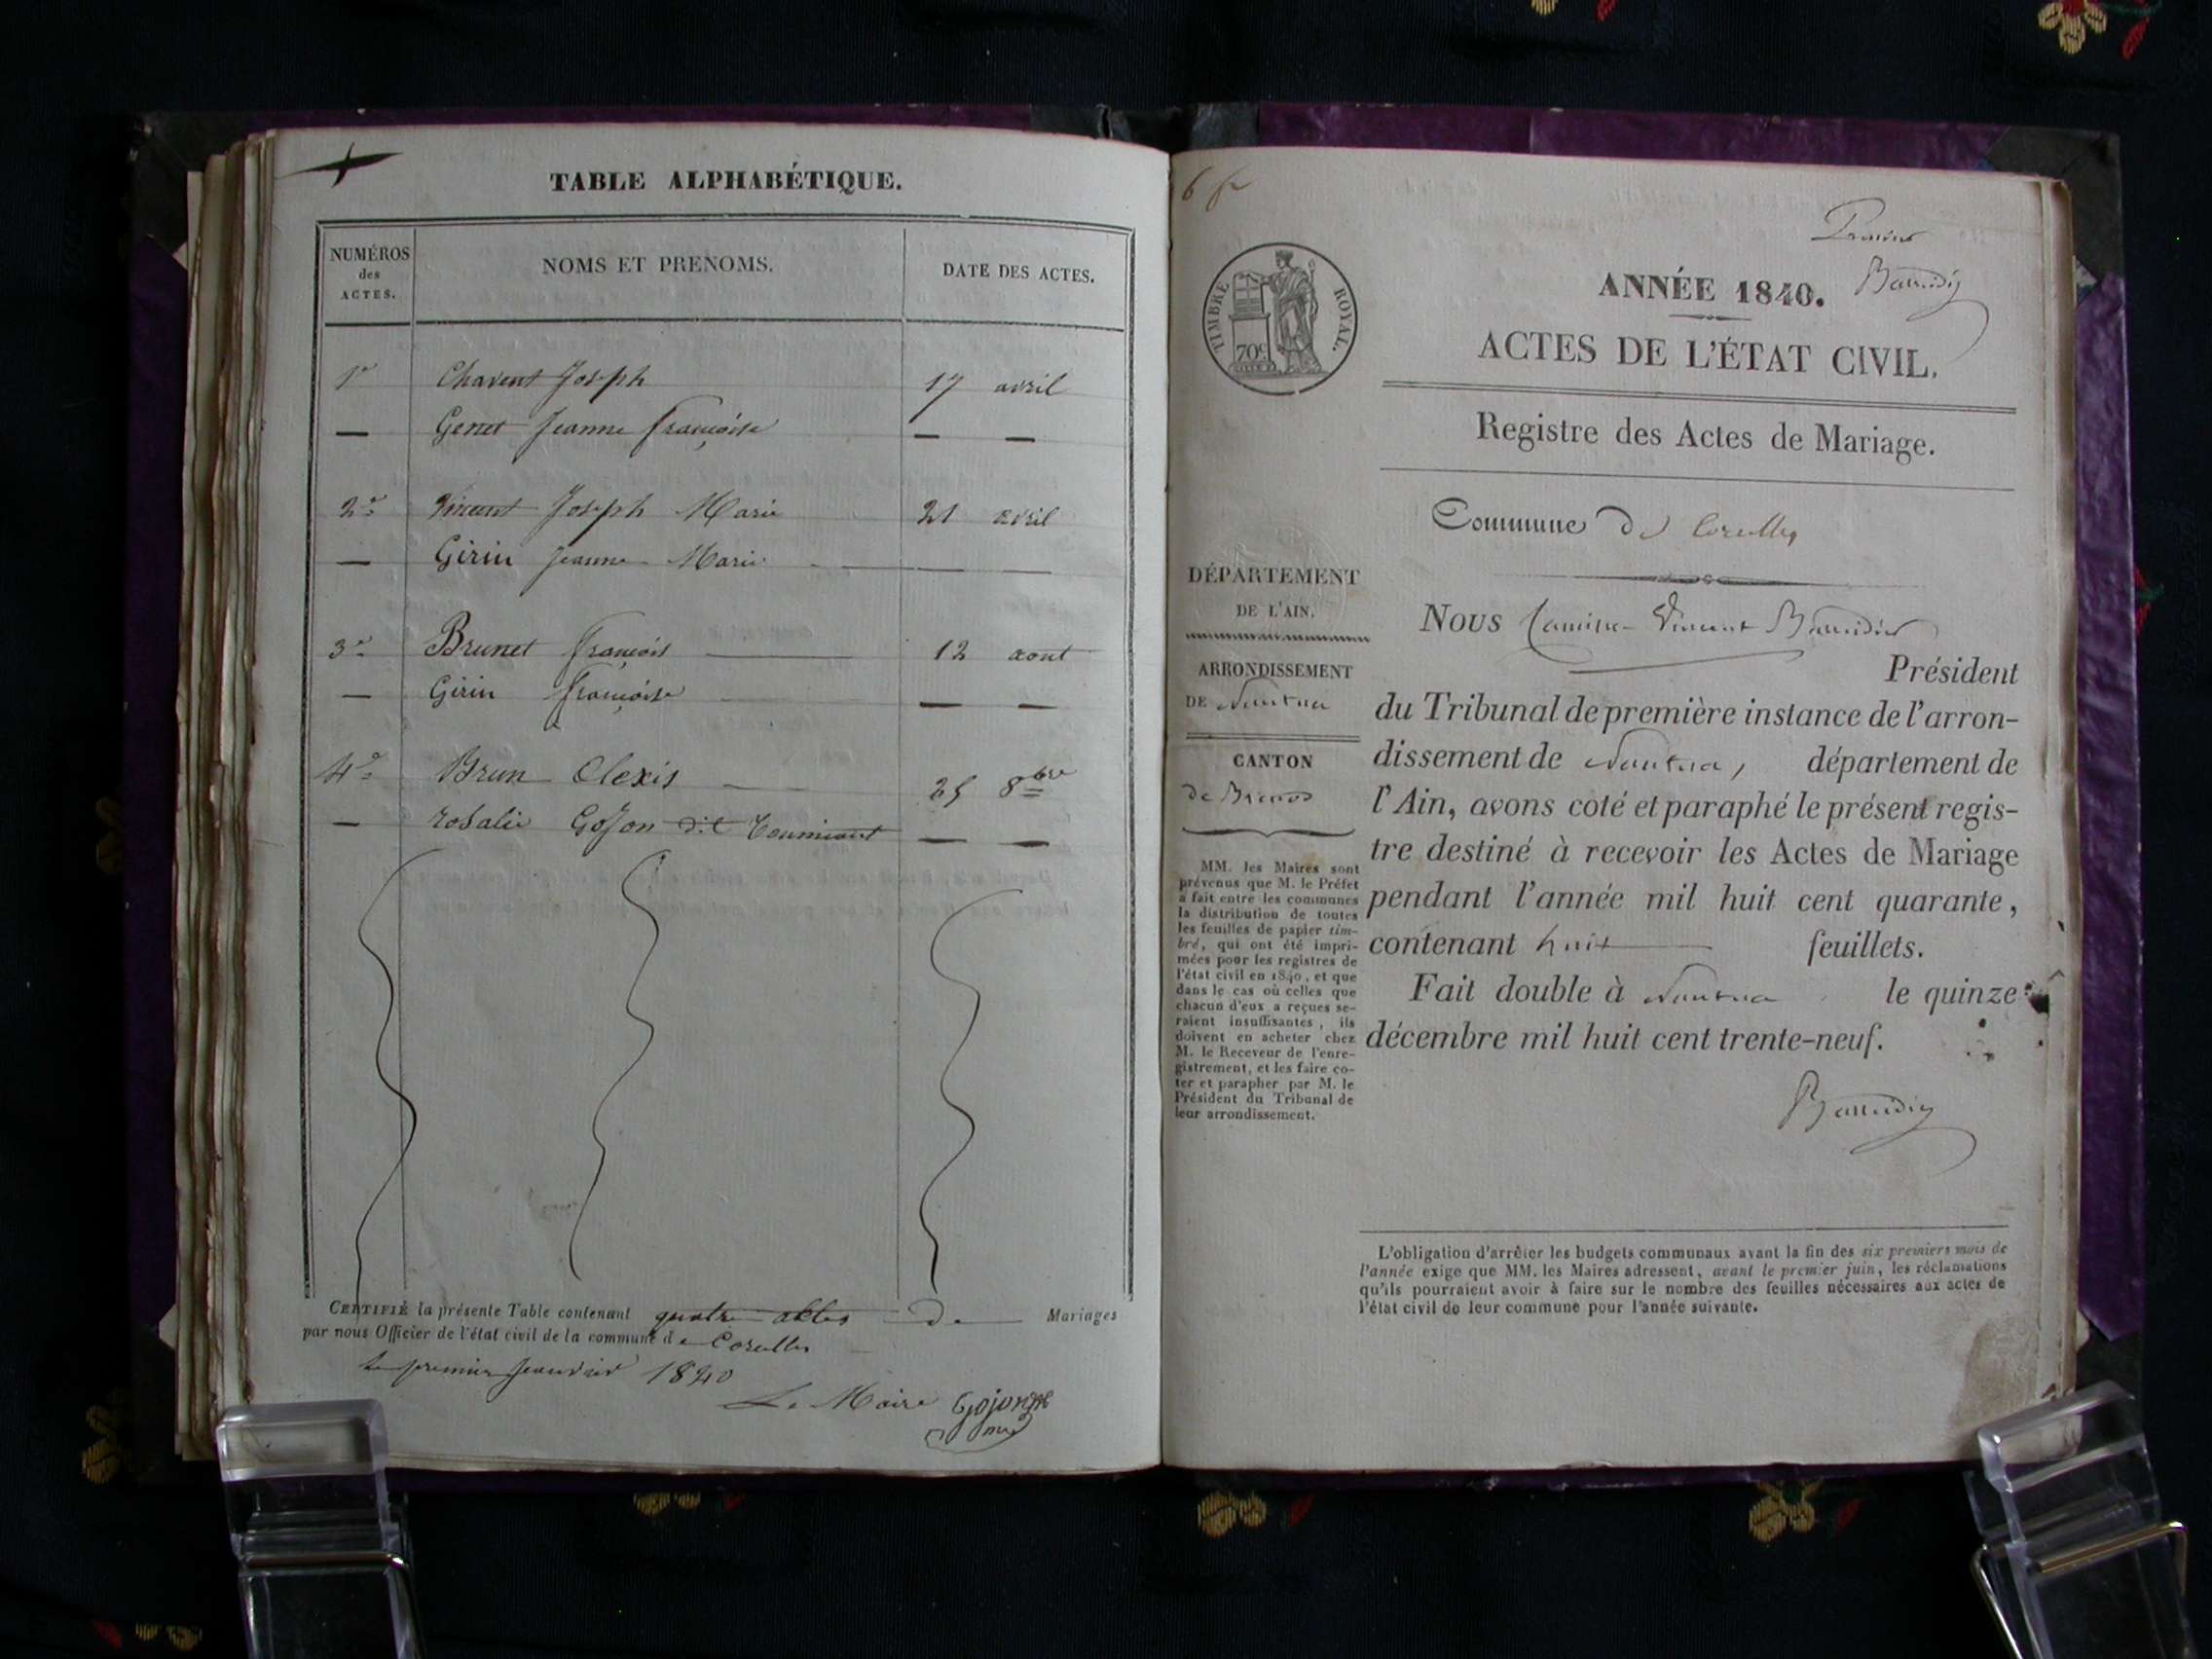 TABLE ALPHABÉTIQUE.
NUMÉROS des ACTES.
NOMS ET PRENOMS.
DATE DES ACTES.
1r Chavent Joseph 17 avril
— Genet Jeanne françoise — —
2d Vincent Joseph Marie 21 avril
— Girin Jeanne Marie — —
3e Brunet françois 12 aout
— Girin françoise — —
4e Brun Alexis 25 8bre
— rosalie Gojon dit — —
CERTIFIÉ la présente Table contenant quatre aktes de Mariages
par nous Officier de l'état civil de la commune de Corcelles
le premier Janvier 1840
Le Maire Gojon
6 f
Premier
Baudin
TIMBRE ROYAL.
70c
ANNÉE 1840.
ACTES DE L'ÉTAT CIVIL.
Registre des Actes de Mariage.
Commune de Corcelles
DÉPARTEMENT
DE L'AIN.
ARRONDISSEMENT
DE Nantua
CANTON
de Brenod
MM. les Maires sont
prévenus que M. le Préfet
a fait entre les communes
la distribution de toutes
les feuilles de papier tim-
bré, qui ont été impri-
mées pour les registres de
l'état civil en 1840, et que
dans le cas où celles que
chacun d'eux a reçues se-
raient insuffisantes, ils
doivent en acheter chez
M. le Receveur de l'enre-
gistrement, et les faire co-
ter et parapher par M. le
Président du Tribunal de
leur arrondissement.
Nous Vincent
Président
du Tribunal de première instance de l'arron-
dissement de Nantua, département de
l'Ain, avons coté et paraphé le présent regis-
tre destiné à recevoir les Actes de Mariage
pendant l'année mil huit cent quarante,
contenant huit feuillets.
Fait double à Nantua le quinze
décembre mil huit cent trente-neuf.
L'obligation d'arrêter les budgets communaux avant la fin des six premiers mois de
l'année exige que MM. les Maires adressent, avant le premier juin, les réclamations
qu'ils pourraient avoir à faire sur le nombre des feuilles nécessaires aux actes de
l'état civil de leur commune pour l'année suivante.